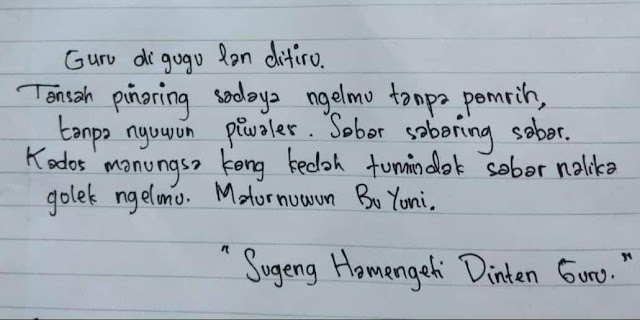 Guru di gugu lan ditiru.
Tansah pinaring sadaya ngelmu tanpa pamrih,
tanpa nyuwun piwales. Sabar sabaring sabar.
Kados manungsa kang kedah tumindak sabar nalika
golek ngelmu. Maturnuwun Bu Yuni.
"Sugeng Hamengeti Dinten Guru."